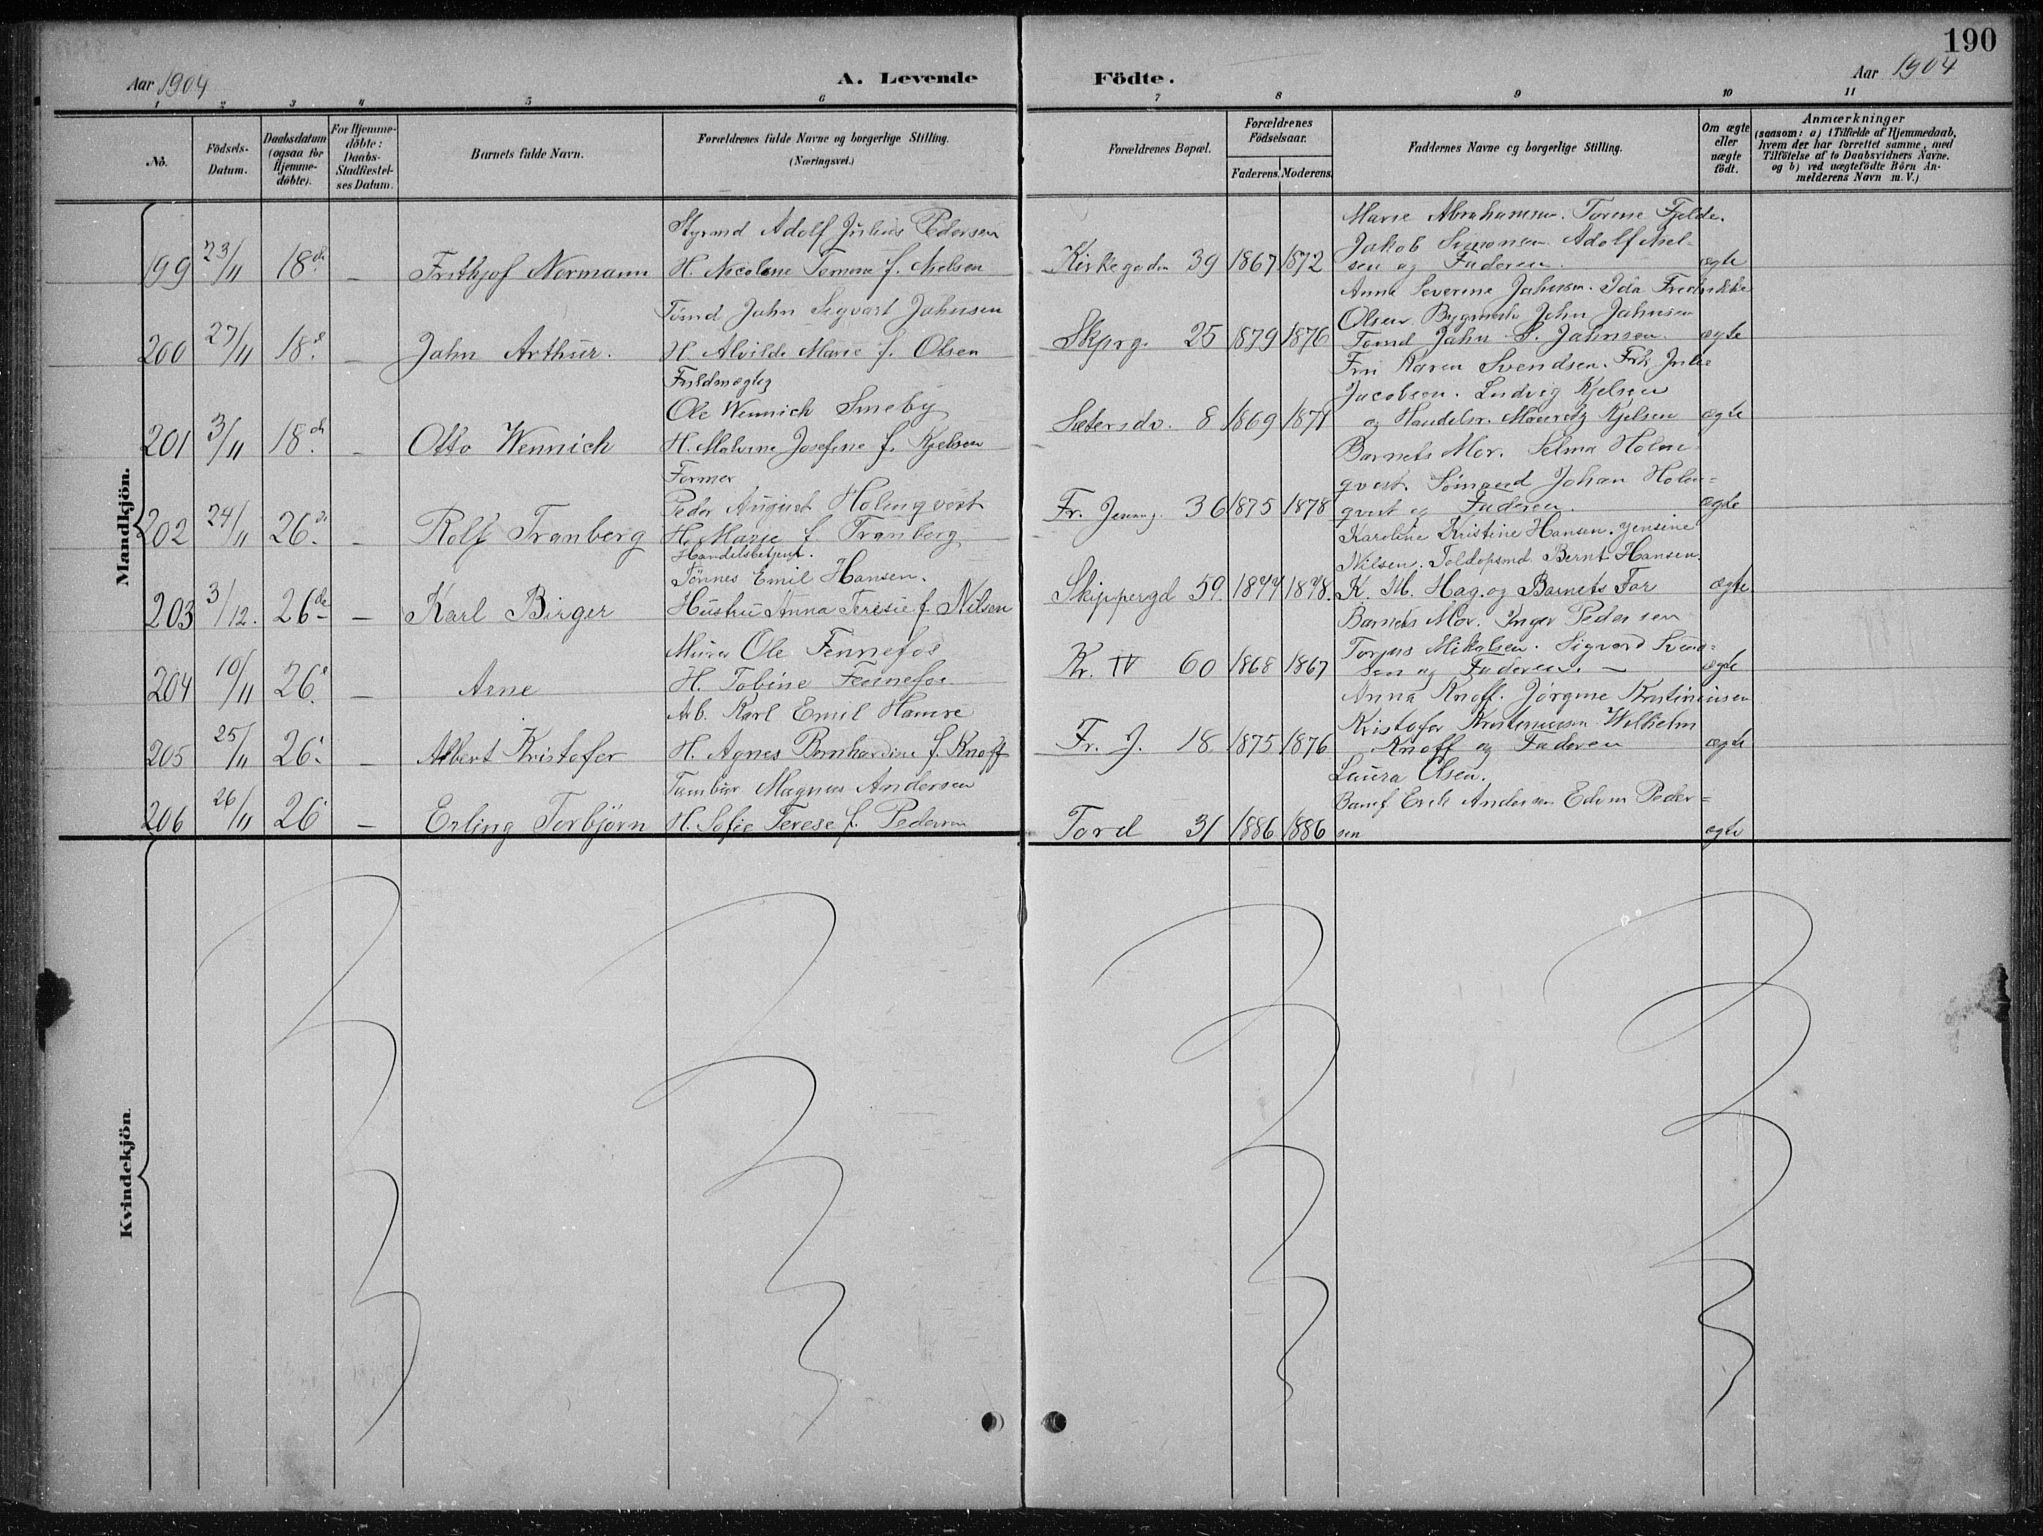 190
Aar 1904
A. Levende
Födte.
Aar 1904
1 2 3 4 5 6 7 8 9 10 11
No.
Födsels-
Datum.
Daabsdatum
(ogsaa for
Hjemme-
döbte).
For Hjemme-
döbte:
Daabs-
Stadfæstel-
ses Datum.
Barnets fulde Navn.
Forældrenes fulde Navne og borgerlige Stilling.
(Næringsvei.)
Forældrenes Bopæl.
Forældrenes
Födselsaar.
Faderens. Moderens.
Faddernes Navne og borgerlige Stilling.
Om ægte
eller
uægte
födt.
Anmærkninger
(saasom: a) i Tilfælde af Hjemmedaab,
hvem der har forrettet samme, med
Tilföielse af to Daabsvidners Navne.
og b) ved uægtefödte Börn An-
melderens Navn m. V.)
Mandkjön.
Styrmd Adolf Julius Pedersen
199 23/11 18de — Frithjof Normann H. Nicoline Temine f. Nielsen
Kirkegaden 39 1867 1872
Marie Abrahamsen. Torine Fjelde.
Jakob Simonsen. Adolf Niel-
sen og Faderen. ægte
Tömd John Sigvart Johnsen
200 27/11 18d. — John Arthur. H. Alvilde Marie f. Olsen
Skprg. 25 1879 1876
Anna Severine Johnsen. Ida Fredrikke
Olsen. Bygmester John Johnsen
Tömd John S. Johnsen. ægte
Fuldmægtig
Ole Wennich Smeby
201 3/11 18de — Otto Wennich H. Malvine Josefine f. Kjelsen
Sætersdv. 8 1869 1871
Fru Karen Svendsen. Frk Julie
Jacobsen. Ludvig Kjelsen
og Handelsr. Mauritz Kjelsen ægte
Former
Peder August Holmqvist
202 24/11 26de — Rolf Tranberg H. Marie f. Tranberg
Fr. Jensensg. 36 1875 1878
Barnets Mor. Selma Holm-
qvist. Sömand Johan Holm-
qvist og Faderen. ægte
Handelsbetjent.
Tönnes Emil Hansen.
203 3/12. 26de — Karl Birger Hustru Anna Teresie f. Nilsen
Skippergd 59. 1844 1848.
Karoline Kristine Hansen. Jensine
Nilsen. Toldopsmd Bernt Hansen.
K. M. Hag. og Barnets Far ægte
Murer Ole Fennefos
204 10/11 26d. — Arne H. Tobine Fennefos
Kr. IV 60 1868 1867
Barnets Mor. Inger Pedersen
Torjus Mikalsen. Sigvard Svend-
sen og Faderen. — ægte
Arb. Karl Emil Hamre
205 25/11 26d. — Albert Kristofer H. Agnes Bernhardine f. Knoff
Fr. J. 18 1875 1876
Anna Knoff. Jörgine Kristiniusen
Kristofer Kristeniusen Wilhelm
Knoff og Faderen ægte
Tambur Magnus Andersen
206 26/11 26 — Erling Torbjörn H. Sofie Terese f. Pedersen
Tord 31 1886 1886
Laura Olsen.
Erik Andersen Edvin Peder-
sen ægte
Kvindekjön.